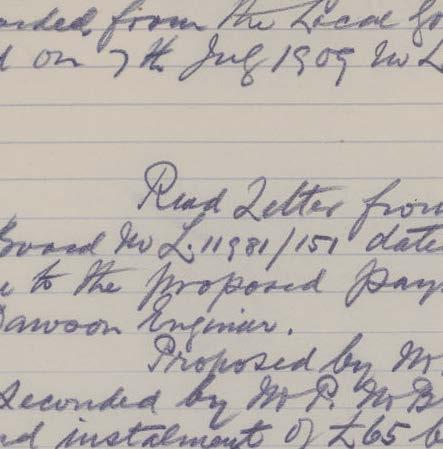 arded from the Local Go
d on 7th July 1909 No L
Read Letter from
Board No L. 11981/151 date
e to the proposed pay
Dawson Engineer.
Proposed by Mr.
Seconded by Mr P. McB
nd instalment of £65 b